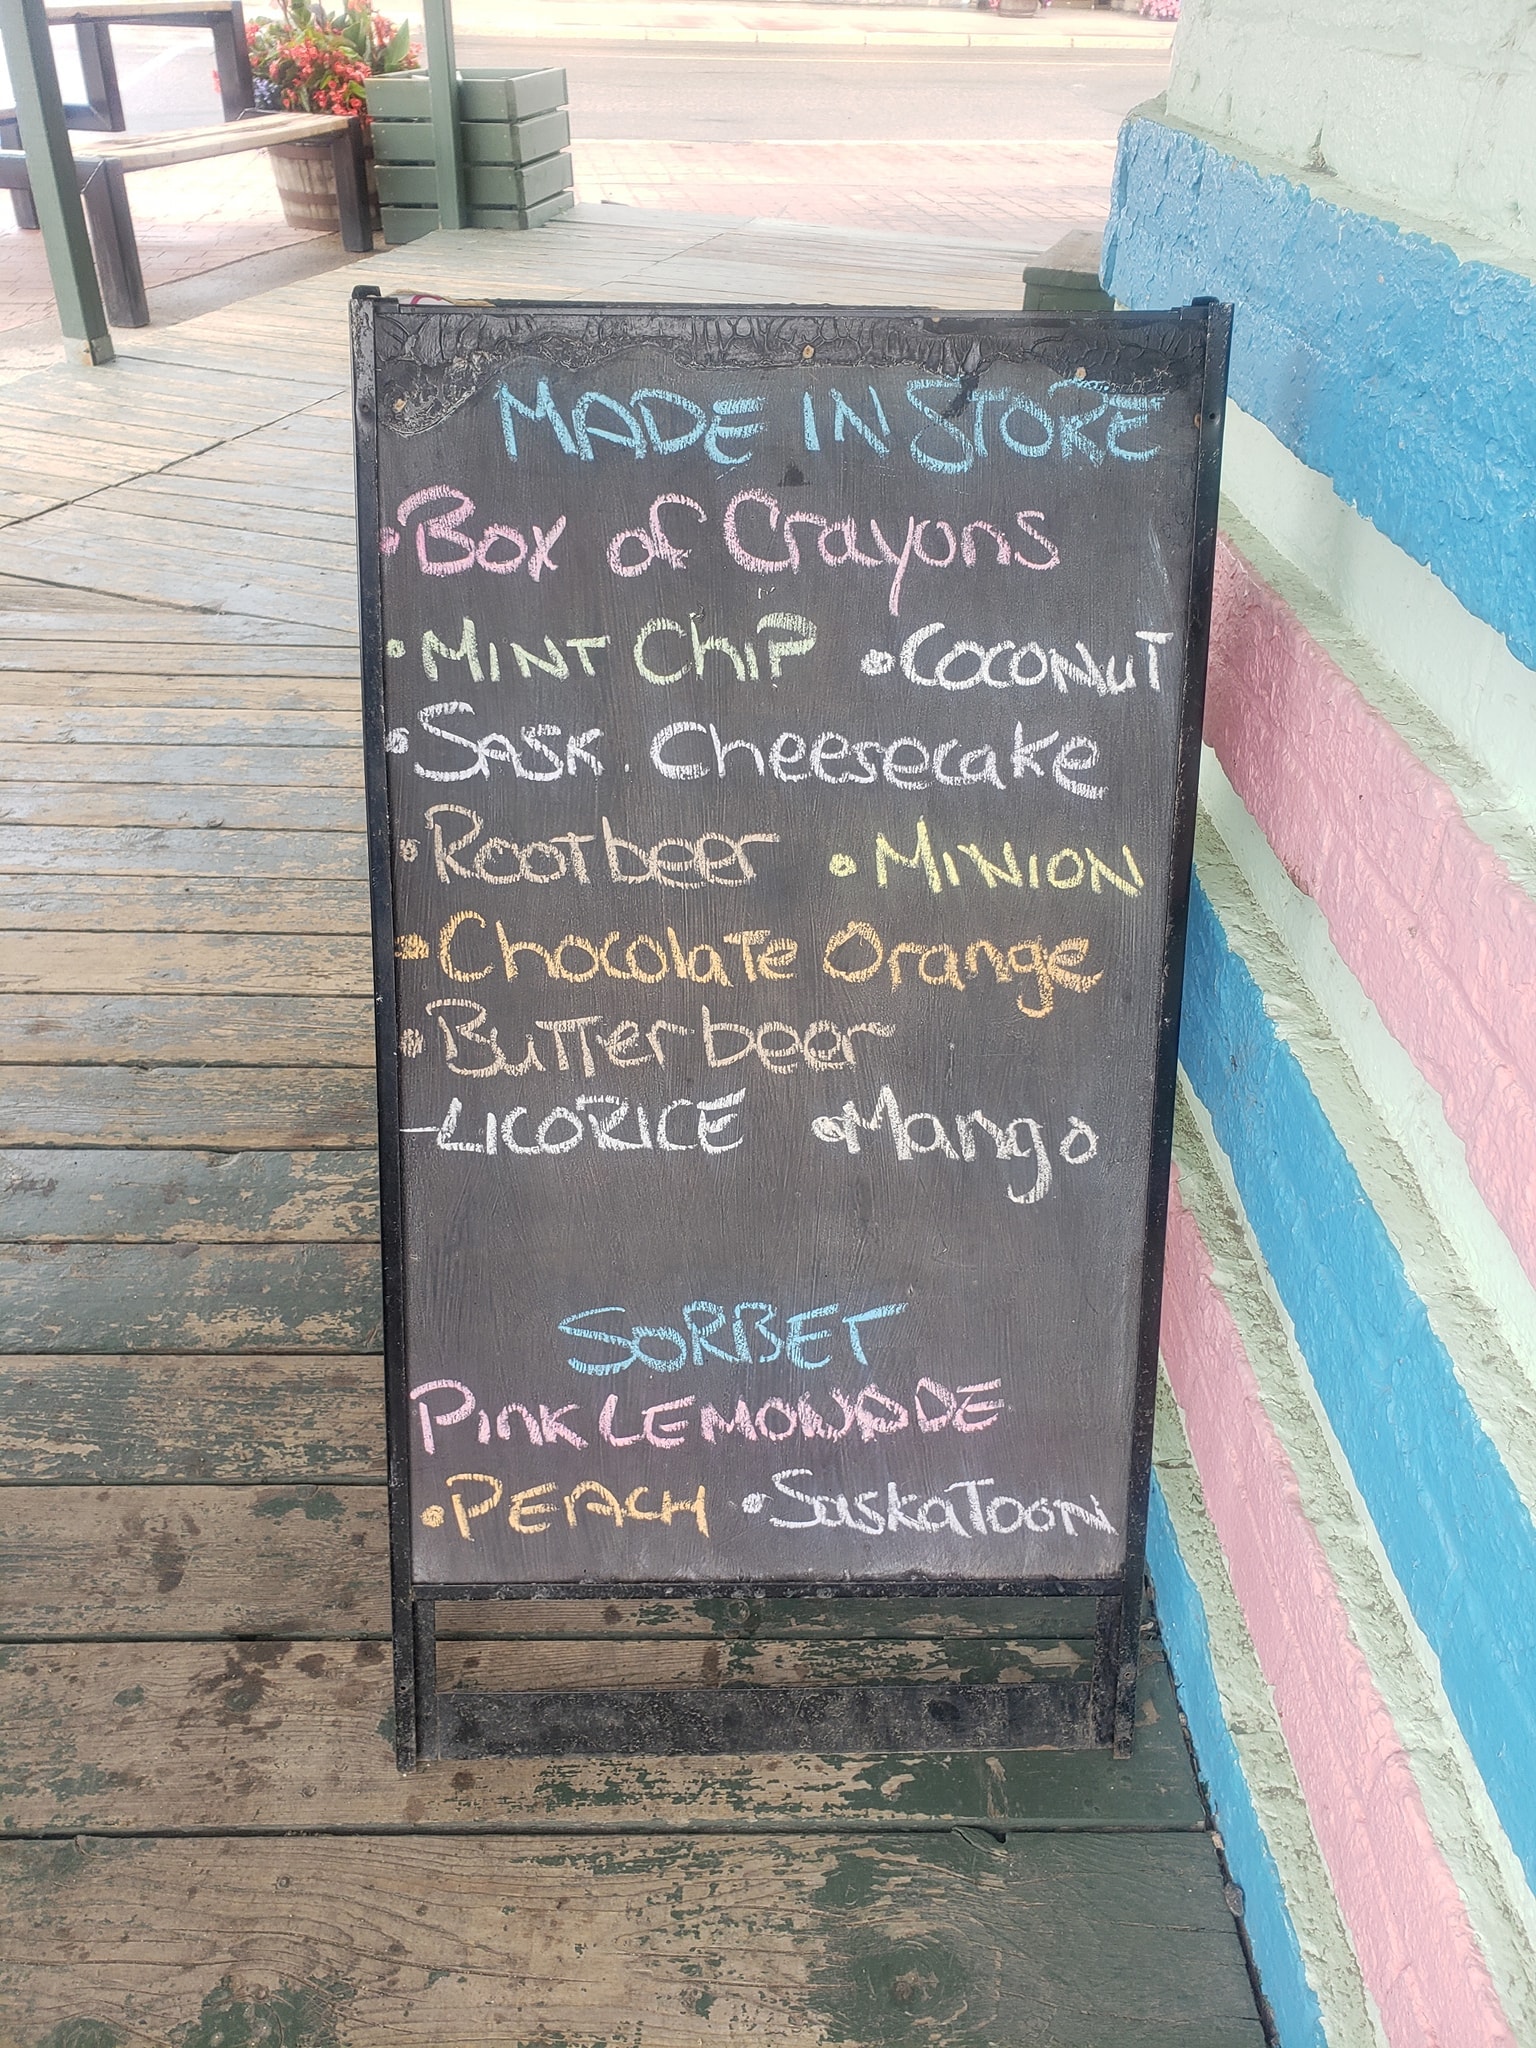 MADE IN STORE
• Box of Crayons
• MINT CHIP • COCONUT
• SASK. Cheesecake
• Rootbeer • MINION
• Chocolate Orange
• Butterbeer
- LICORICE • Mango
SORBET
PINK LEMONADE
• PEACH • SaskaTOON